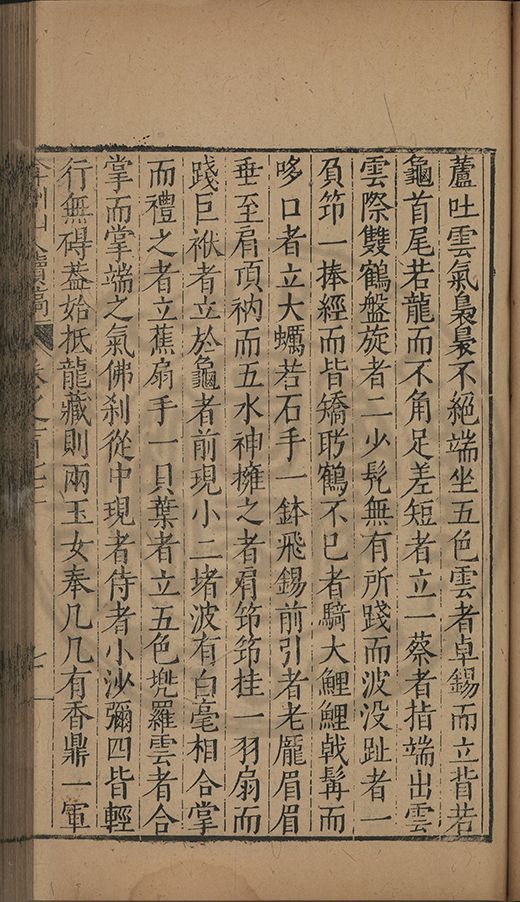 蘆吐雲氣裊裊不絕端坐五色雲者卓錫而立背若
龜首尾若龍而不角足差短者立一蔡者指端出雲
雲際雙鶴盤旋者二少髡無有所踐而波没趾者一
負笻一捧經而皆矯聆鶴不已者騎大鯉鯉戟髯而
哆口者立大蠣若石手一鉢飛錫前引者老龎眉眉
垂至肩頂衲而五水神擁之者肩笻笻挂一羽扇而
踐巨袱者立於龜者前現小二堵波有白毫相合掌
而禮之者立蕉扇手一貝葉者立五色兠羅雲者合
掌而掌端之氣佛刹從中現者侍者小沙彌四皆輕
行無碍葢始抵龍藏則兩玉女奉几几有香鼎一軍
弇州山人續稿